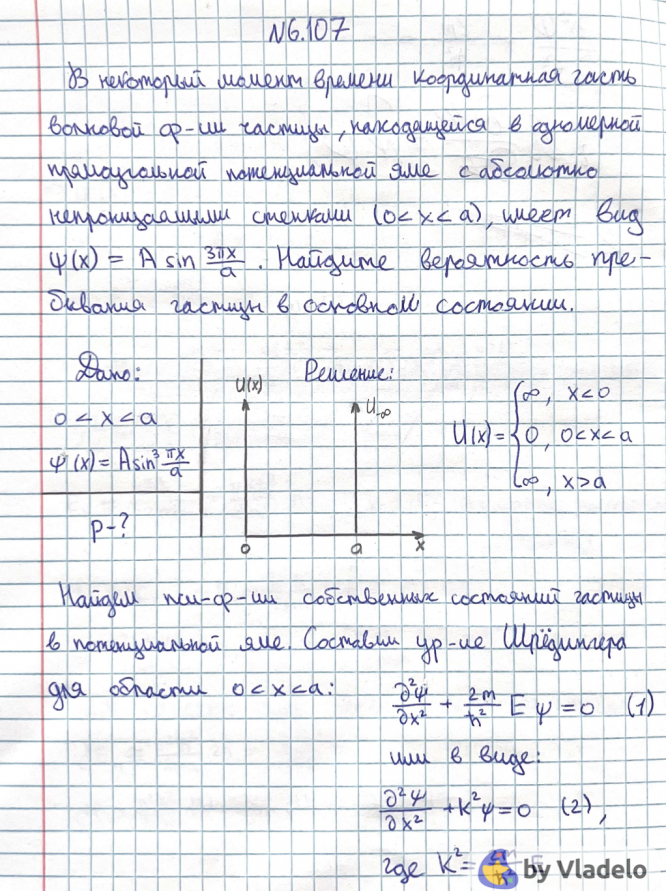 №6.107
В некоторый момент времени координатная часть
волновой ф-ии частицы, находящейся в одномерной
прямоугольной потенциальной яме с абсолютно
непроницаемыми стенками (0<x<a), имеет вид
ψ(x) = A sin 3πx/a . Найдите вероятность пре-
бывания частицы в основном состоянии.
Дано:
0 < x < a
ψ(x) = A sin³ πx/a
P-?
Решение:
U(x)
U→∞
0 a x
U(x) = { ∞, x<0
0, 0<x<a
∞, x>a
Найдем пси-ф-ии собственных состояний частицы
в потенциальной яме. Составим ур-ие Шрёдингера
для области 0<x<a: ∂²ψ/∂x² + 2m/ħ² E ψ = 0 (1)
или в виде:
∂²ψ/∂x² + K²ψ = 0 (2),
где K² = 2m/ħ² E
by Vladelo